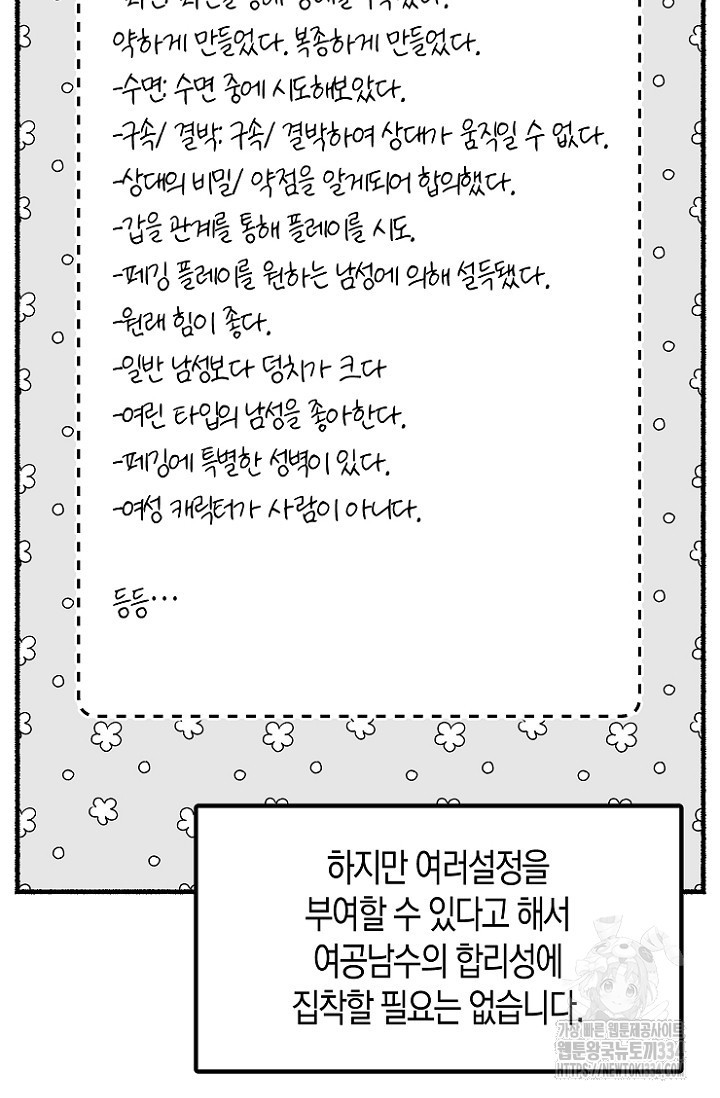 약하게 만들었다. 복종하게 만들었다.
-수면: 수면 중에 시도해보았다.
-구속/ 결박: 구속/ 결박하여 상대가 움직일 수 없다.
-상대의 비밀/ 약점을 알게되어 합의했다.
-갑을 관계를 통해 플레이를 시도.
-페깅 플레이를 원하는 남성에 의해 설득됐다.
-원래 힘이 좋다.
-일반 남성보다 덩치가 크다
-여린 타입의 남성을 좋아한다.
-페깅에 특별한 성벽이 있다.
-여성 캐릭터가 사람이 아니다.
등등…
하지만 여러설정을
부여할 수 있다고 해서
여공남수의 합리성에
집착할 필요는 없습니다.
가장 빠른 웹툰제공사이트
웹툰왕국뉴토끼334
HTTPS://NEWTOKI334.COM